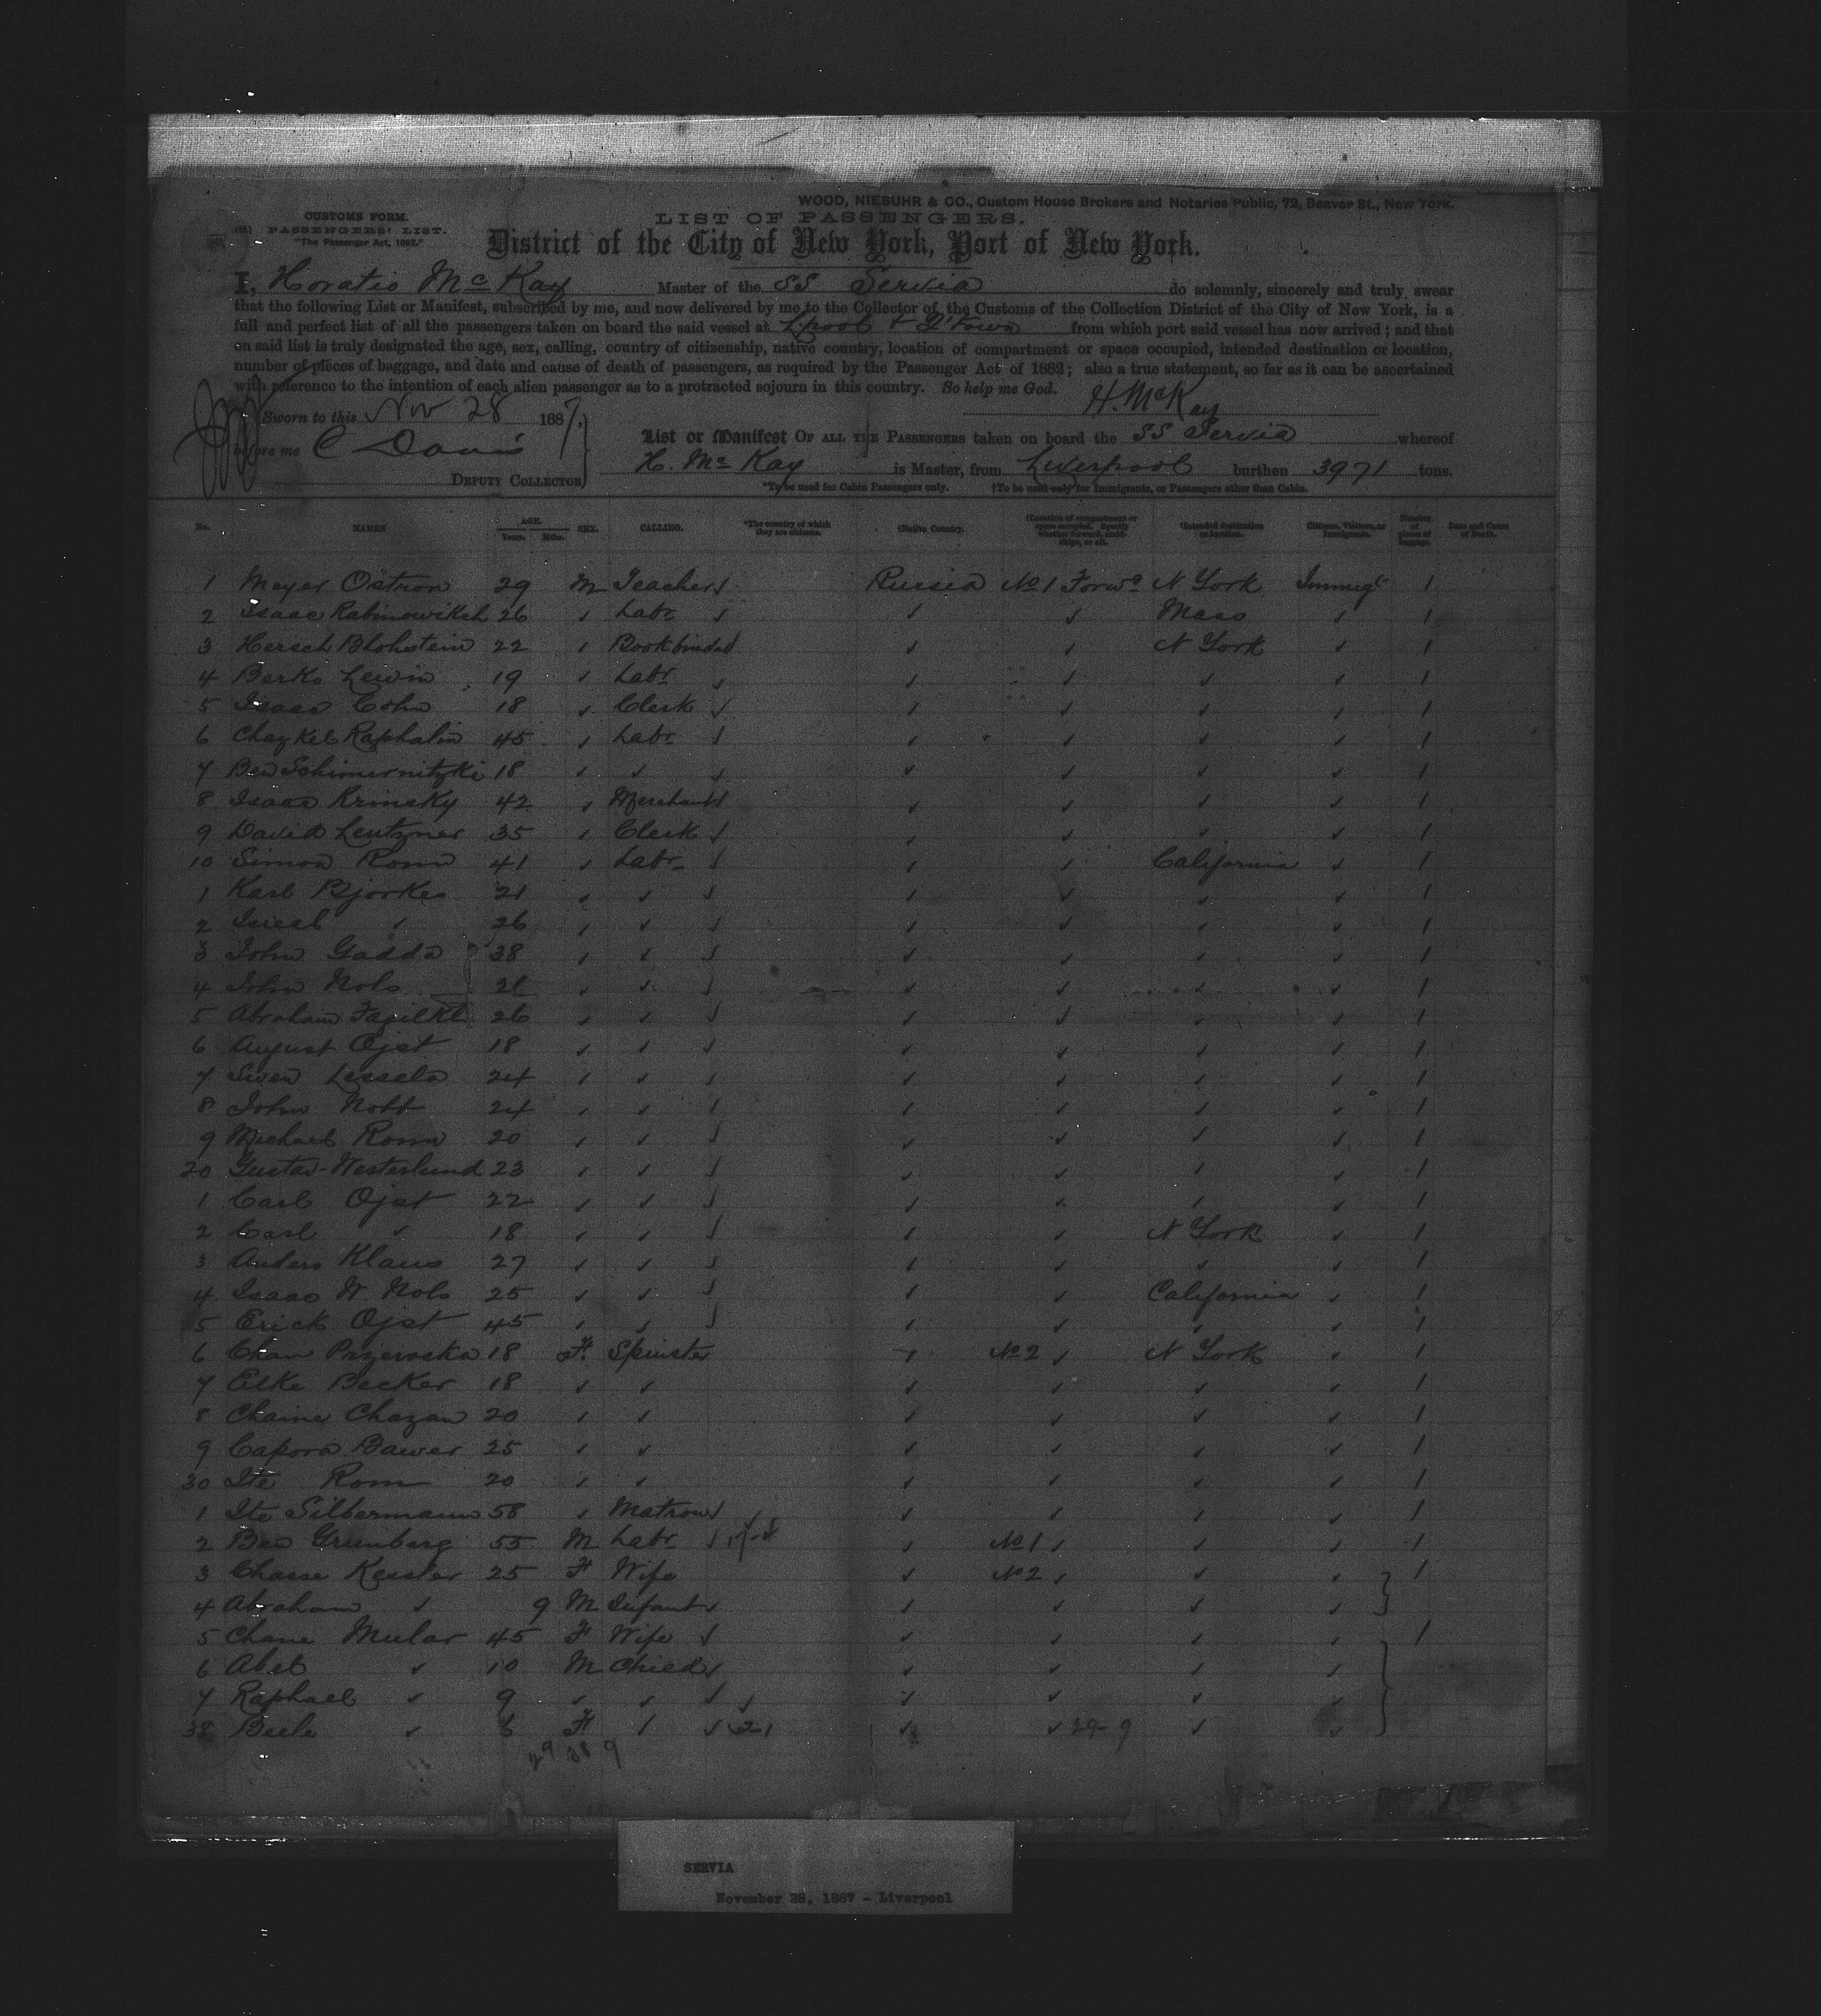 WOOD, NIEBUHR & CO., Custom House Brokers and Notaries Public, 72, Beaver St., New York.
CUSTOMS FORM.
PASSENGERS' LIST.
"The Passenger Act, 1882."
LIST OF PASSENGERS.
District of the City of New York, Port of New York.
I, Horatio McKay Master of the SS Servia do solemnly, sincerely and truly swear
that the following List or Manifest, subscribed by me, and now delivered by me to the Collector of the Customs of the Collection District of the City of New York, is a
full and perfect list of all the passengers taken on board the said vessel at L'pool & Q'town from which port said vessel has now arrived; and that
on said list is truly designated the age, sex, calling, country of citizenship, native country, location of compartment or space occupied, intended destination or location,
number of pieces of baggage, and date and cause of death of passengers, as required by the Passenger Act of 1882; also a true statement, so far as it can be ascertained
with reference to the intention of each alien passenger as to a protracted sojourn in this country. So help me God.
H. McKay
Sworn to this Nov 28 1887.
before me C Davis
DEPUTY COLLECTOR
List or Manifest OF ALL THE PASSENGERS taken on board the SS Servia whereof
H. Mc Kay is Master, from Liverpool burthen 3971 tons.
*To be used for Cabin Passengers only. †To be used only for Immigrants, or Passengers other than Cabin.
No. NAMES AGE. Years. Mths. SEX. CALLING. *The country of which they are citizens. †Native Country. †Location of compartment or space occupied. Specify whether forward, amidships, or aft. †Intended destination or location. Citizens, Visitors, or Immigrants. Number of pieces of baggage. Date and Cause of Death.
1 Meyer Ostron 29 M Teacher Russia No 1 Forwd N York Immigt 1
2 Isaac Rabinowitch 26 ✓ Labr ✓ ✓ Mass ✓ 1
3 Hersch Blohstein 22 ✓ Bookbinder ✓ ✓ N York ✓ 1
4 Berko Lewin 19 ✓ Labr ✓ ✓ ✓ ✓ 1
5 Isaac Cohn 18 ✓ Clerk ✓ ✓ ✓ ✓ 1
6 Chaykel Raphalin 45 ✓ Labr ✓ ✓ ✓ ✓ 1
7 Ben Schimernitzki 18 ✓ ✓ ✓ ✓ ✓ ✓ 1
8 Isaac Krinsky 42 ✓ Merchant ✓ ✓ ✓ ✓ 1
9 David Leutzner 35 ✓ Clerk ✓ ✓ ✓ ✓ 1
10 Simon Rom 41 ✓ Labr ✓ ✓ California ✓ 1
1 Karl Bjorkes 21 ✓ ✓ ✓ ✓ ✓ ✓ 1
2 ✓ 26 ✓ ✓ ✓ ✓ ✓ ✓ 1
3 John Gadda 38 ✓ ✓ ✓ ✓ ✓ ✓ 1
4 John Nols ✓ ✓ ✓ ✓ ✓ ✓ 1
5 Abraham 26 ✓ ✓ ✓ ✓ ✓ ✓ 1
6 August Ojst 18 ✓ ✓ ✓ ✓ ✓ ✓ 1
7 Swen Lessela 24 ✓ ✓ ✓ ✓ ✓ ✓ 1
8 John Nobb 24 ✓ ✓ ✓ ✓ ✓ ✓ 1
9 Michael Rom 20 ✓ ✓ ✓ ✓ ✓ ✓ 1
20 Gustav Westerlund 23 ✓ ✓ ✓ ✓ ✓ ✓ 1
1 Carl Ojst 22 ✓ ✓ ✓ ✓ ✓ ✓ 1
2 Carl ✓ 18 ✓ ✓ ✓ ✓ N York ✓ 1
3 Anders Klaus 27 ✓ ✓ ✓ ✓ ✓ ✓ 1
4 Isaac W. Nols 25 ✓ ✓ ✓ ✓ California ✓ 1
5 Erick Ojst 45 ✓ ✓ ✓ ✓ ✓ ✓ 1
6 Chan Przeroska 18 F. Spinster ✓ No 2 ✓ N York ✓ 1
7 Elke Becker 18 ✓ ✓ ✓ ✓ ✓ ✓ 1
8 Chaine Chazan 20 ✓ ✓ ✓ ✓ ✓ ✓ 1
9 Capora Bawer 25 ✓ ✓ ✓ ✓ ✓ ✓ 1
30 Ite Rom 20 ✓ ✓ ✓ ✓ ✓ ✓ 1
1 Ite Silbermann 58 ✓ Matron ✓ ✓ ✓ ✓ 1
2 Ben Grunberg 55 M Labr ✓ No 1 ✓ ✓ ✓ 1
3 Chasse Kessler 25 F Wife ✓ No 2 ✓ ✓ ✓ 1
4 Abraham ✓ 9 M Infant ✓ ✓ ✓ ✓
5 Chane Mular 45 F Wife ✓ ✓ ✓ ✓ 1
6 Abel ✓ 10 M Child ✓ ✓ ✓ ✓
7 Raphael ✓ 9 ✓ ✓ ✓ ✓ ✓ ✓
38 Beele ✓ F ✓ ✓ 21 ✓ ✓ 29-9 ✓ ✓
29 38 9
SERVIA
November 28, 1887 - Liverpool